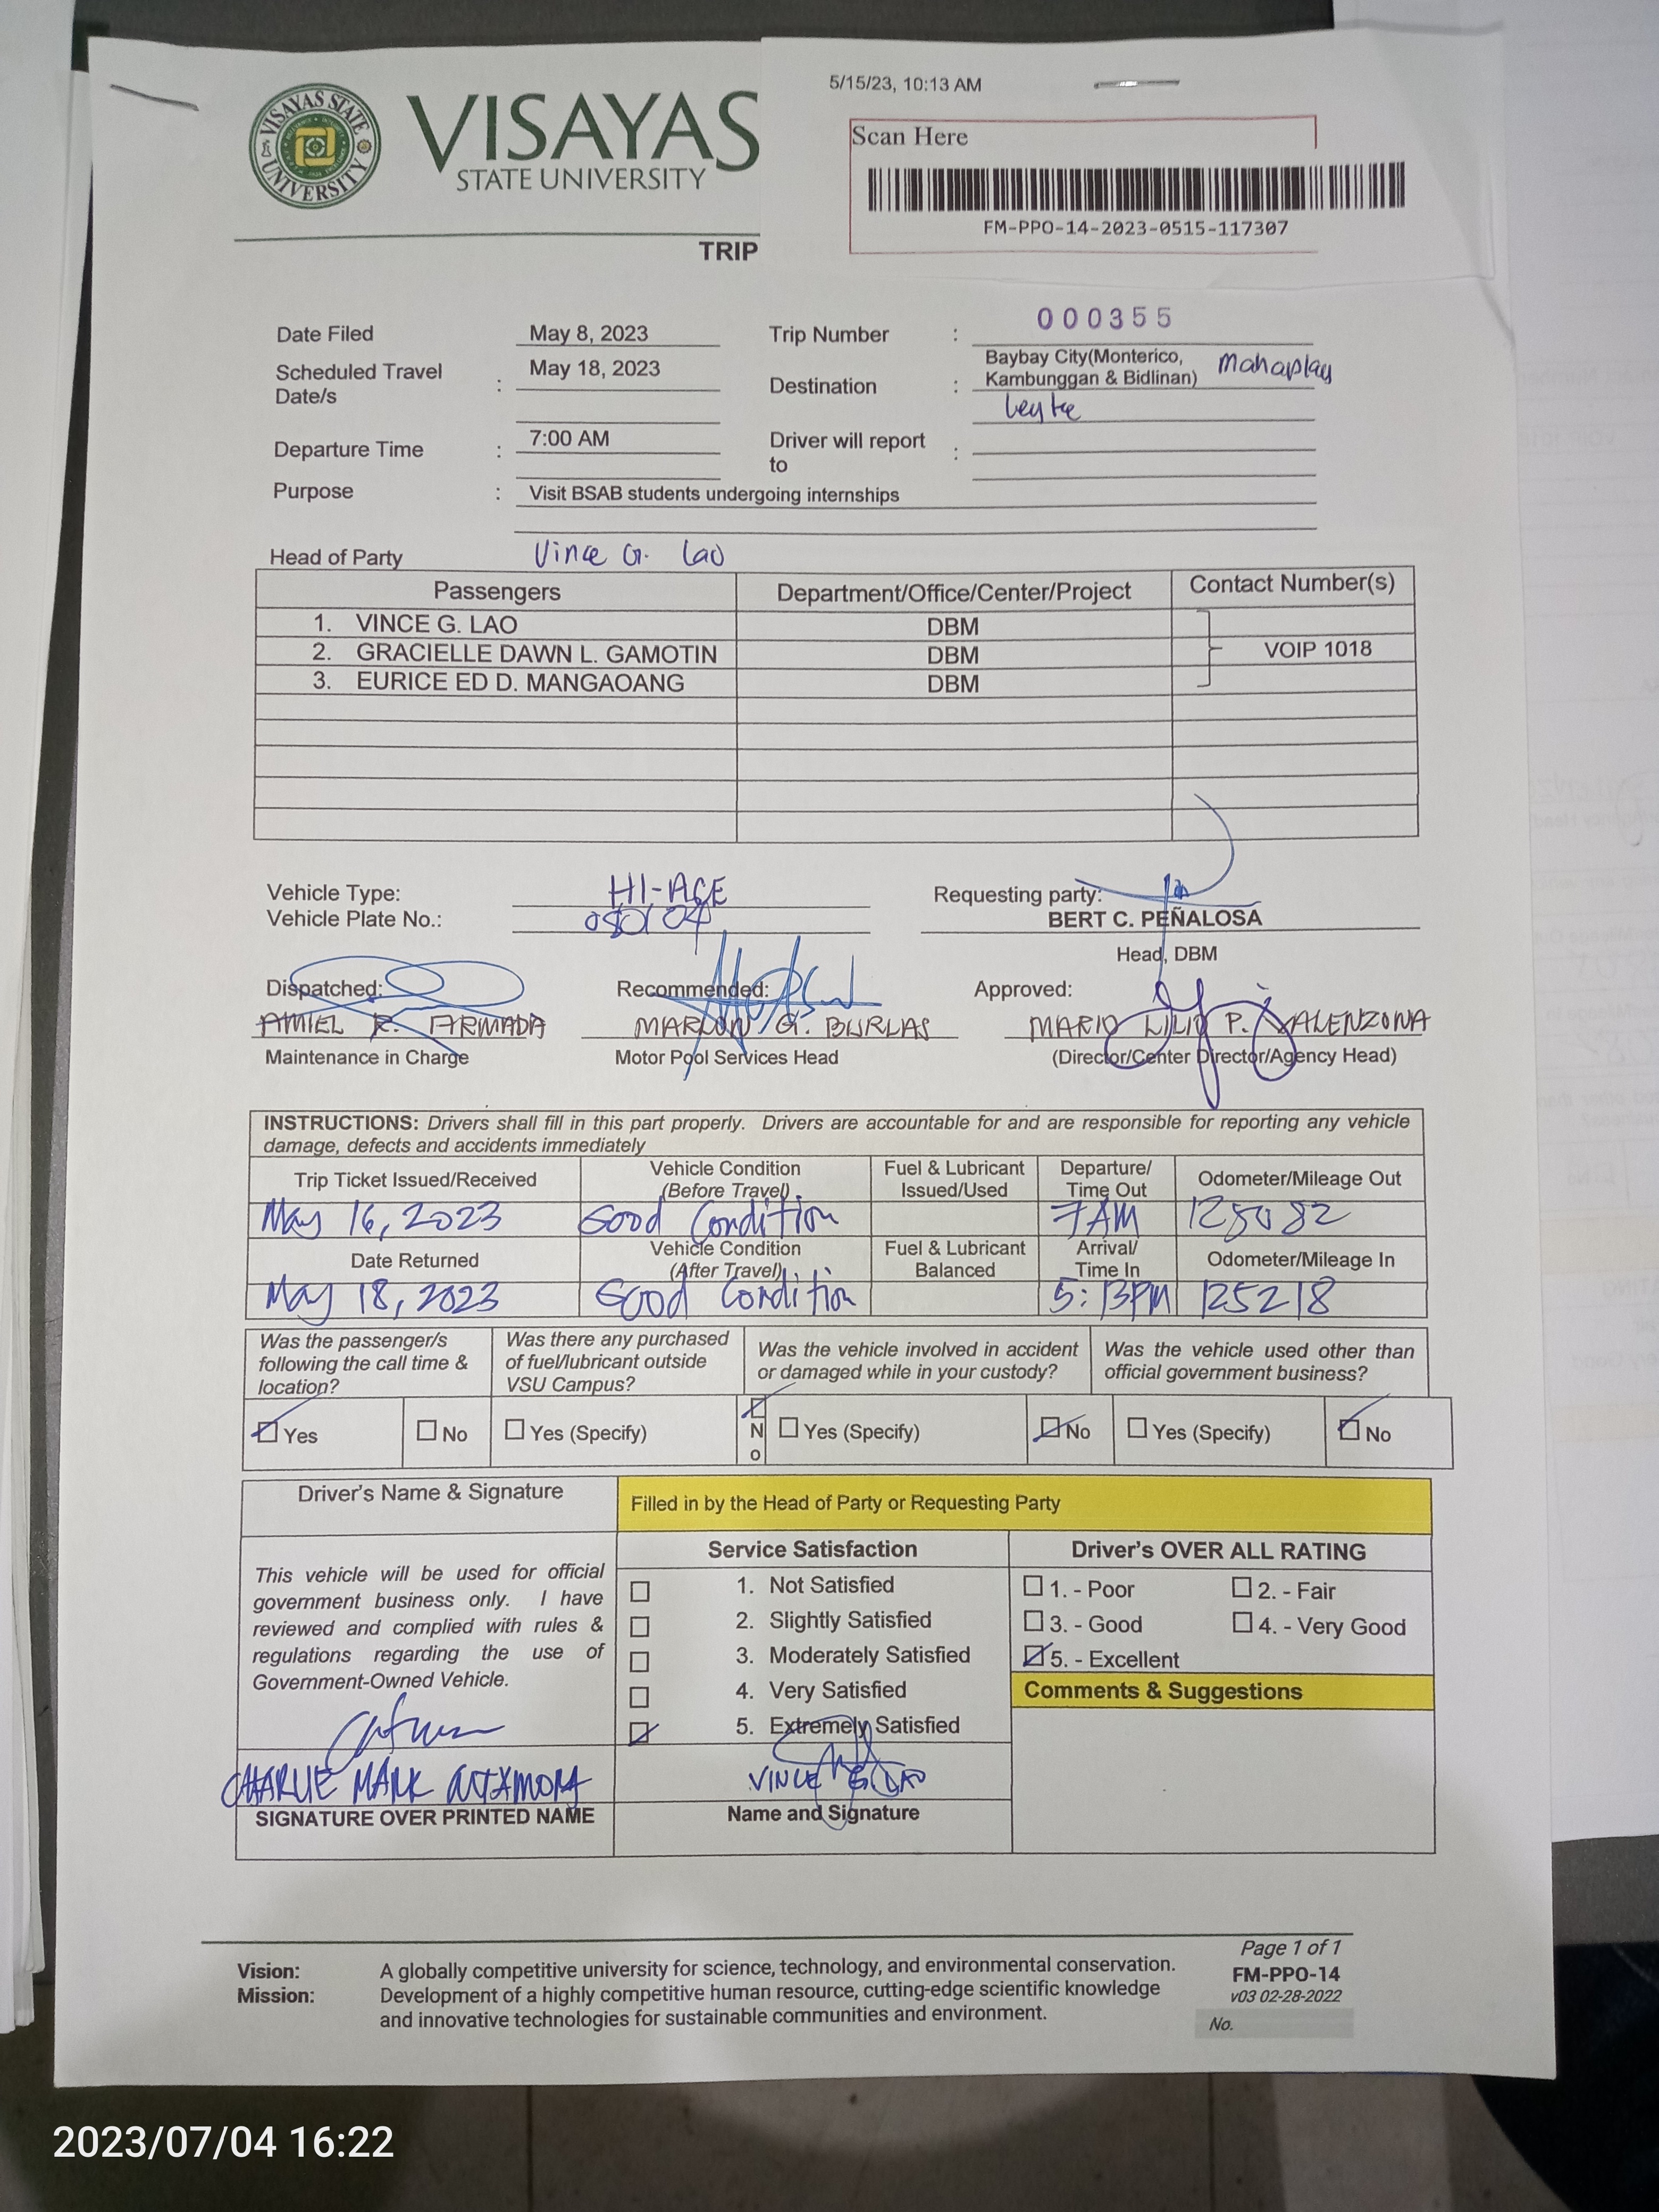 VISAYAS STATE UNIVERSITY
VISAYAS
STATE UNIVERSITY
5/15/23, 10:13 AM
Scan Here
FM-PPO-14-2023-0515-117307
TRIP
Date Filed May 8, 2023 Trip Number : 000355
Scheduled Travel Date/s : May 18, 2023 Destination : Baybay City(Monterico, Kambunggan & Bidlinan) Mahaplag
Leyte
Departure Time : 7:00 AM Driver will report to :
Purpose : Visit BSAB students undergoing internships
Head of Party Vince G. Lao
Passengers Department/Office/Center/Project Contact Number(s)
1. VINCE G. LAO DBM
2. GRACIELLE DAWN L. GAMOTIN DBM VOIP 1018
3. EURICE ED D. MANGAOANG DBM
Vehicle Type: HI-ACE Requesting party:
Vehicle Plate No.: BERT C. PEÑALOSA
Head, DBM
Dispatched: Recommended: Approved:
AMIEL R. ARMADA MARLON G. BURLAS MARIO LILIO P. VALENZONA
Maintenance in Charge Motor Pool Services Head (Director/Center Director/Agency Head)
INSTRUCTIONS: Drivers shall fill in this part properly. Drivers are accountable for and are responsible for reporting any vehicle
damage, defects and accidents immediately
Trip Ticket Issued/Received Vehicle Condition (Before Travel) Fuel & Lubricant Issued/Used Departure/ Time Out Odometer/Mileage Out
May 16, 2023 Good Condition 7AM 125082
Date Returned Vehicle Condition (After Travel) Fuel & Lubricant Balanced Arrival/ Time In Odometer/Mileage In
May 18, 2023 Good Condition 5:13PM 125218
Was the passenger/s following the call time & location? Was there any purchased of fuel/lubricant outside VSU Campus? Was the vehicle involved in accident or damaged while in your custody? Was the vehicle used other than official government business?
Yes No Yes (Specify) No Yes (Specify) No Yes (Specify) No
Driver's Name & Signature Filled in by the Head of Party or Requesting Party
Service Satisfaction Driver's OVER ALL RATING
This vehicle will be used for official
government business only. I have
reviewed and complied with rules &
regulations regarding the use of
Government-Owned Vehicle.
1. Not Satisfied
2. Slightly Satisfied
3. Moderately Satisfied
4. Very Satisfied
5. Extremely Satisfied
1. - Poor 2. - Fair
3. - Good 4. - Very Good
5. - Excellent
Comments & Suggestions
CHARLIE MARK VINCE G. LAO
SIGNATURE OVER PRINTED NAME Name and Signature
Page 1 of 1
Vision: A globally competitive university for science, technology, and environmental conservation.
FM-PPO-14
Mission: Development of a highly competitive human resource, cutting-edge scientific knowledge
v03 02-28-2022
and innovative technologies for sustainable communities and environment.
No.
2023/07/04 16:22